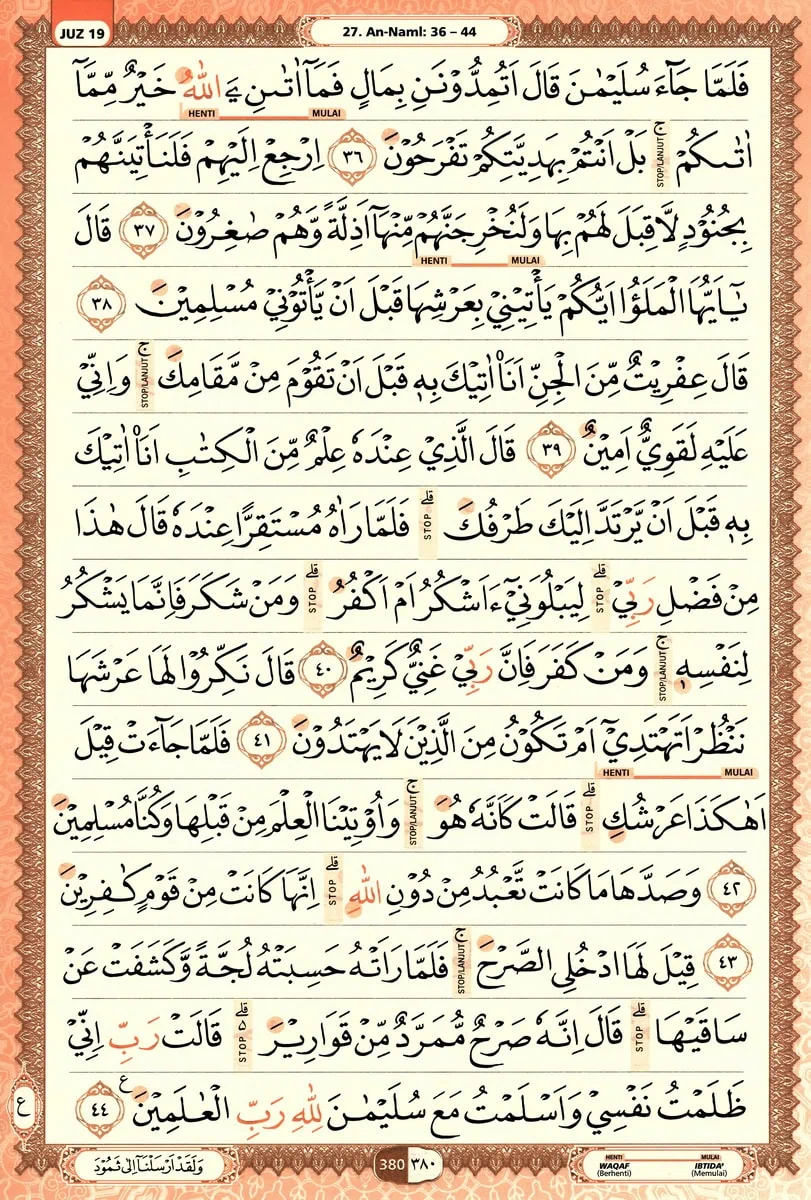 JUZ 19
27. An-Naml: 36 – 44
فَلَمَّا جَاۤءَ سُلَيْمٰنَ قَالَ اَتُمِدُّوْنَنِ بِمَالٍ فَمَآ اٰتٰىنِ يَ اللّٰهُ خَيْرٌ مِّمَّآ
HENTI MULAI
اٰتٰىكُمْ ۚ STOP/LANJUT بَلْ اَنْتُمْ بِهَدِيَّتِكُمْ تَفْرَحُوْنَ ٣٦ اِرْجِعْ اِلَيْهِمْ فَلَنَأْتِيَنَّهُمْ
بِجُنُوْدٍ لَّا قِبَلَ لَهُمْ بِهَا وَلَنُخْرِجَنَّهُمْ مِّنْهَآ اَذِلَّةً وَّهُمْ صٰغِرُوْنَ ٣٧ قَالَ
HENTI MULAI
يٰٓاَيُّهَا الْمَلَؤُا اَيُّكُمْ يَأْتِيْنِيْ بِعَرْشِهَا قَبْلَ اَنْ يَّأْتُوْنِيْ مُسْلِمِيْنَ ٣٨
قَالَ عِفْرِيْتٌ مِّنَ الْجِنِّ اَنَا۠ اٰتِيْكَ بِهٖ قَبْلَ اَنْ تَقُوْمَ مِنْ مَّقَامِكَ ۚ STOP/LANJUT وَاِنِّيْ
عَلَيْهِ لَقَوِيٌّ اَمِيْنٌ ٣٩ قَالَ الَّذِيْ عِنْدَهٗ عِلْمٌ مِّنَ الْكِتٰبِ اَنَا۠ اٰتِيْكَ
بِهٖ قَبْلَ اَنْ يَّرْتَدَّ اِلَيْكَ طَرْفُكَ ۗ STOP فَلَمَّا رَاٰهُ مُسْتَقِرًّا عِنْدَهٗ قَالَ هٰذَا
مِنْ فَضْلِ رَبِّيْ ۗ STOP لِيَبْلُوَنِيْٓ ءَاَشْكُرُ اَمْ اَكْفُرُ ۗ STOP وَمَنْ شَكَرَ فَاِنَّمَا يَشْكُرُ
لِنَفْسِهٖ ۚ STOP/LANJUT وَمَنْ كَفَرَ فَاِنَّ رَبِّيْ غَنِيٌّ كَرِيْمٌ ٤٠ قَالَ نَكِّرُوْا لَهَا عَرْشَهَا
نَنْظُرْ اَتَهْتَدِيْٓ اَمْ تَكُوْنُ مِنَ الَّذِيْنَ لَا يَهْتَدُوْنَ ٤١ فَلَمَّا جَاۤءَتْ قِيْلَ
HENTI MULAI
اَهٰكَذَا عَرْشُكِ ۗ STOP قَالَتْ كَاَنَّهٗ هُوَ ۚ STOP/LANJUT وَاُوْتِيْنَا الْعِلْمَ مِنْ قَبْلِهَا وَكُنَّا مُسْلِمِيْنَ
٤٢ وَصَدَّهَا مَا كَانَتْ تَّعْبُدُ مِنْ دُوْنِ اللّٰهِ ۗ STOP اِنَّهَا كَانَتْ مِنْ قَوْمٍ كٰفِرِيْنَ
٤٣ قِيْلَ لَهَا ادْخُلِى الصَّرْحَ ۚ STOP/LANJUT فَلَمَّا رَاَتْهُ حَسِبَتْهُ لُجَّةً وَّكَشَفَتْ عَنْ
سَاقَيْهَا ۗ STOP قَالَ اِنَّهٗ صَرْحٌ مُّمَرَّدٌ مِّنْ قَوَارِيْرَ ۗ STOP قَالَتْ رَبِّ اِنِّيْ
ظَلَمْتُ نَفْسِيْ وَاَسْلَمْتُ مَعَ سُلَيْمٰنَ لِلّٰهِ رَبِّ الْعٰلَمِيْنَ ࣖ ٤٤
ع
وَلَقَدْ اَرْسَلْنَآ اِلٰى ثَمُوْدَ
380 ٣٨٠
HENTI MULAI
WAQAF IBTIDA'
(Berhenti) (Memulai)